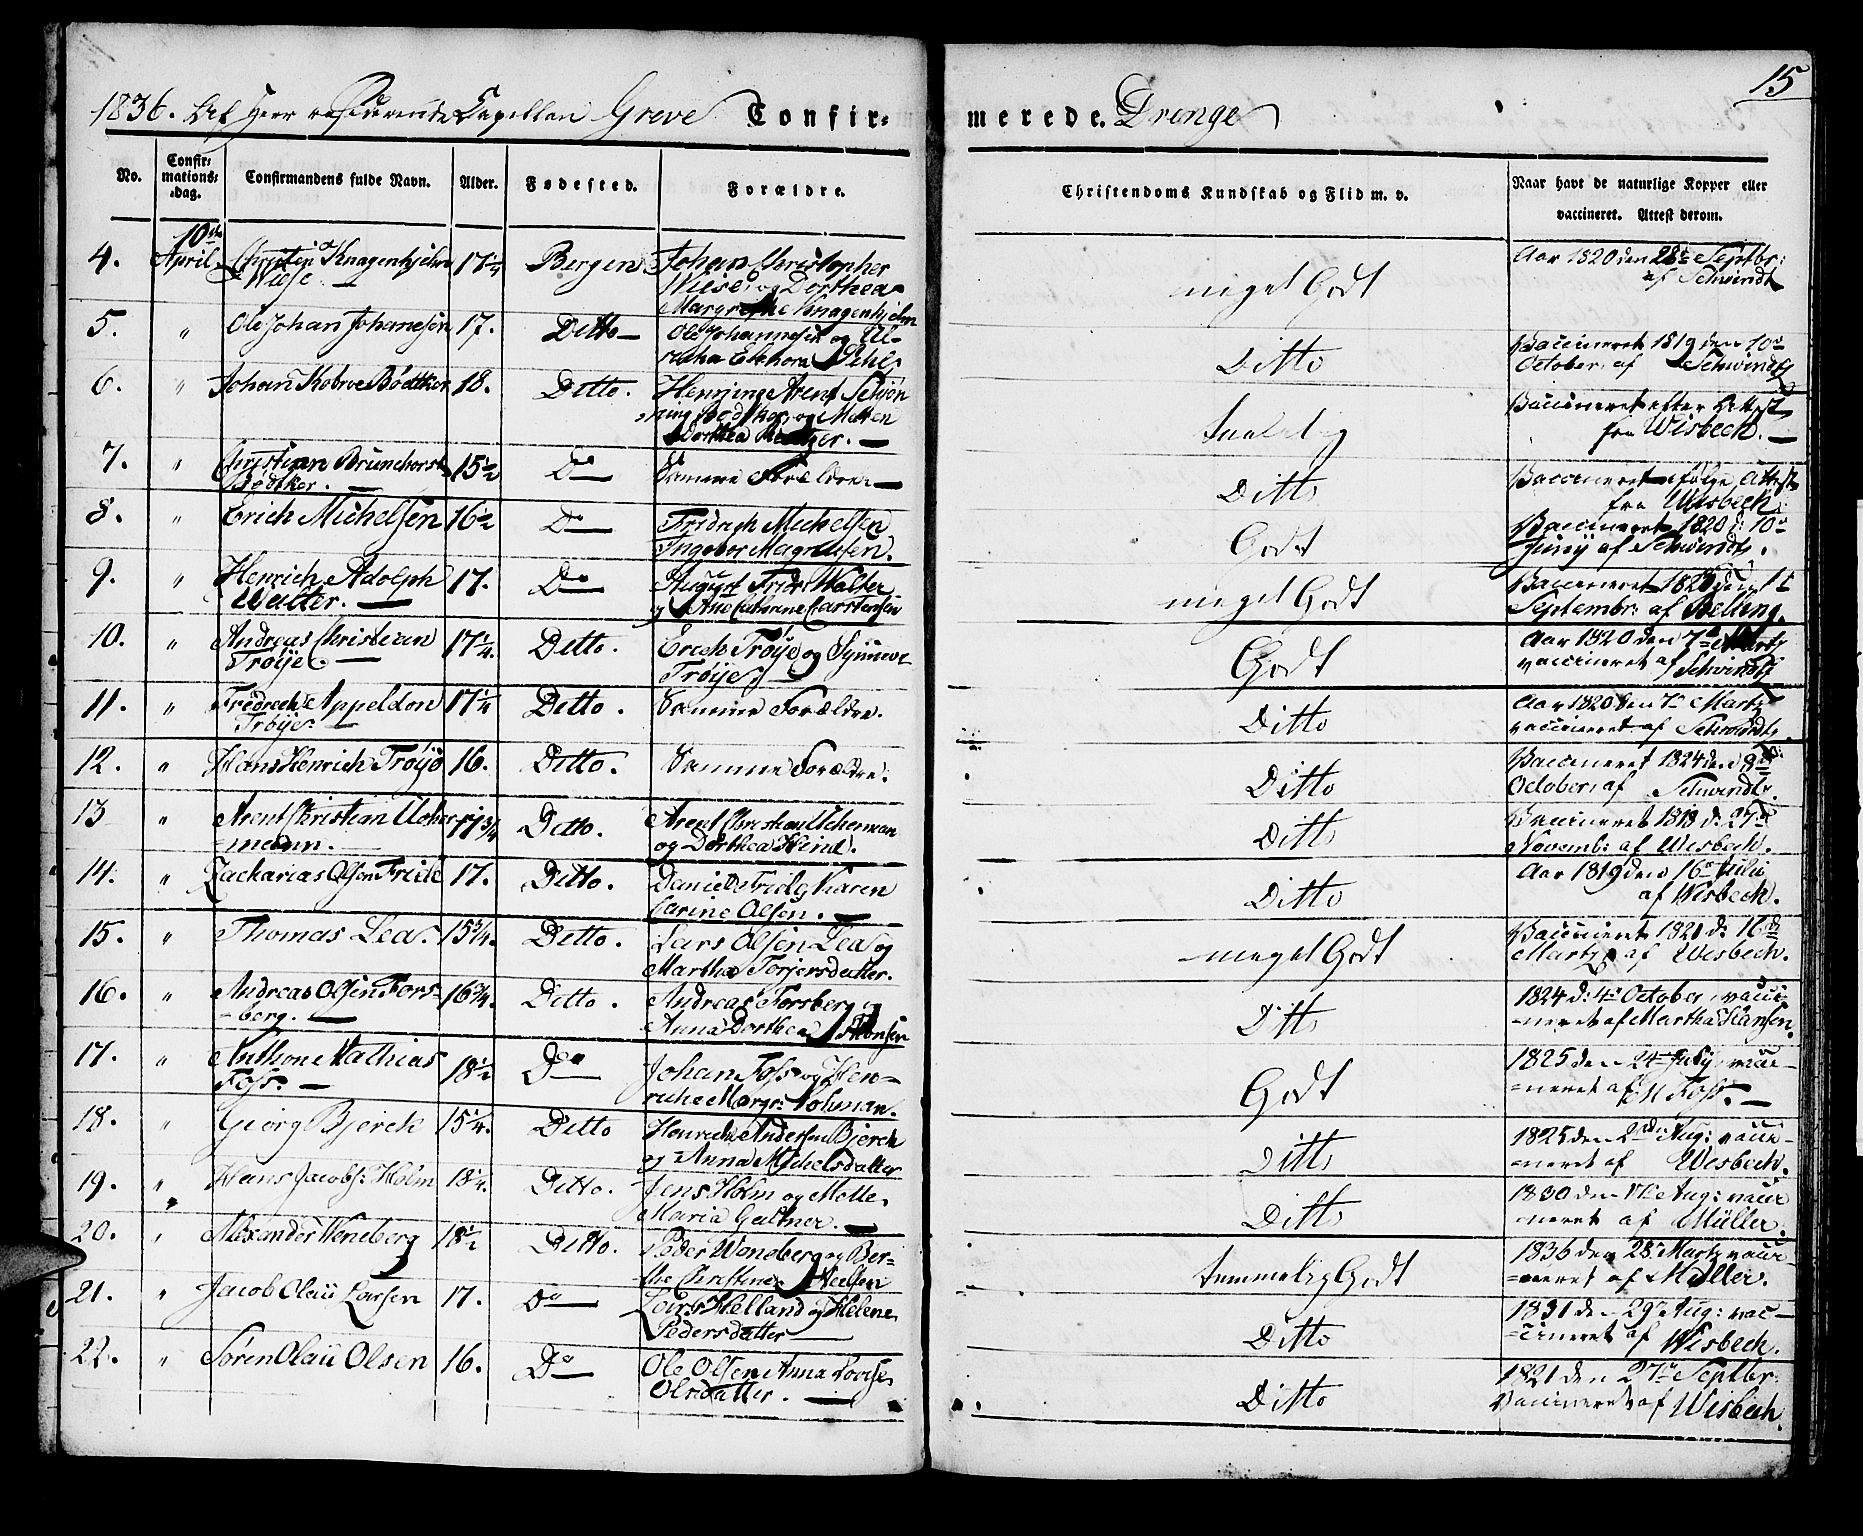 15
1836. Af Herr residerende Capellan Greve Confirmerede. Drenge
No. Confirmations-dag. Confirmandens fulde Navn. Alder. Fødested. Forældre. Christendoms Kundskab og Flid m. v. Naar havt de naturlige Kopper eller vaccineret. Attest derom.
4. 10de April Christen Knagenhjelm Wiese. 17 1/4 Bergen Johan Christopher Wiese og Dorthea Margrethe Knagenhjelm meget Godt Aar 1820 den 28de Septbr: af Schwindt
5. " Ole Johan Johannesen 17. Ditto Ole Johannesen og Ul- Elchora Pihl Ditto Vaccineret 1819 den 10de October af Schwindt
6. " Johan Kobroe Bødtker 18. Ditto. Henning Arent Schjønning Bødtker og Metten Dorthea taalelig Vaccineret efter Attest fra Wisbech.
7. " Christian Brunchorst Bødtker. 15 1/2 Do Samme Forældre Ditto Vaccineret ifølge Attest fra Wisbech
8. " Erich Michelsen 16 1/2 Do Fridrich Michelsen Ingebor Magnussen. Godt Vaccineret 1820 d: 10de Junij af Schwindt.
9. " Henrich Adolph Walter. 17. Do August Fridr: Walter og Ane Cathrine Carstensen meget Godt Vaccineret 1820 den 1te Septembr: af
10. " Andreas Christian Trøije 17 1/4. Ditto. Erich Trøije og Synneve Trøije Godt Aar 1820 den 7de Martz vaccineret af Schwindt
11. " Fredrech Appeldon Trøije 17 1/4 Ditto. Samme Forældre. Ditto Aar 1820 den 7de Martz vaccineret af Schwindt
12. " Hans Henrich Trøije 16. Ditto. Samme Forældre. Ditto Vaccineret 1824 den October, af Schwindt.
13 " Arent Christian Ucher=mann. 17 3/4 Ditto. Arent Christian Ucherman og Dorthea Hind. Ditto Vaccineret 1819 d: 27de Novemb: af Wisbech.
14. " Zacharias Olsen Friele 17. Ditto. Daniel Friel og Karen Carine Olsen. Ditto Aar 1819 den 16de Julii af Wisbech.
15. " Thomas Lea. 15 3/4. Ditto. Lars Olsen Lea og Martha Torjersdatter. meget Godt Vaccineret 1821 d: 16de Martz af Wisbech.
16. " Andreas Olsen Fors=berg. 16 3/4. Ditto. Andreas Forsberg og Anna Dorthea Monsen Ditto 1824 d: 4de October, vacci=neret af Martha Hansen.
17. " Anthon Mathias Foss. 18 1/2 Do Johan Foss og Hen=riche Margr: Nohman. Godt 1825 den 24de July, vacci=neret af M Foss.
18. " Georg Bjerck 15 1/4. Ditto Henrich Andersen Bjerck og Anna Michelsdatter Ditto 1825 den 2den Aug: vacci=neret af Wisbech.
19. " Hans Jacobs: Holm 18 1/4. Ditto. Jens Holm og Mette Maria Galtner. Ditto 1830 den 17de Aug: vacci=neret af Müller.
20. " Alexander Weneberg 18 1/2 Ditto. Peder Weneberg og Ber=the Christine Neelsen temmelig Godt 1836 den 28de Martz vacci=neret af Müller.
21. " Jacob Olaii Larsen 17. Do Lars Helland og Helene Pedersdatter Ditto 1831 den 29de Aug: vac=cineret af Wisbech.
22. " Søren Olaii Olsen 16. Do Ole Olsen Anna Lovise Olsdatter. Ditto 1821 den 27de Septbr: vaccineret af Wisbech.